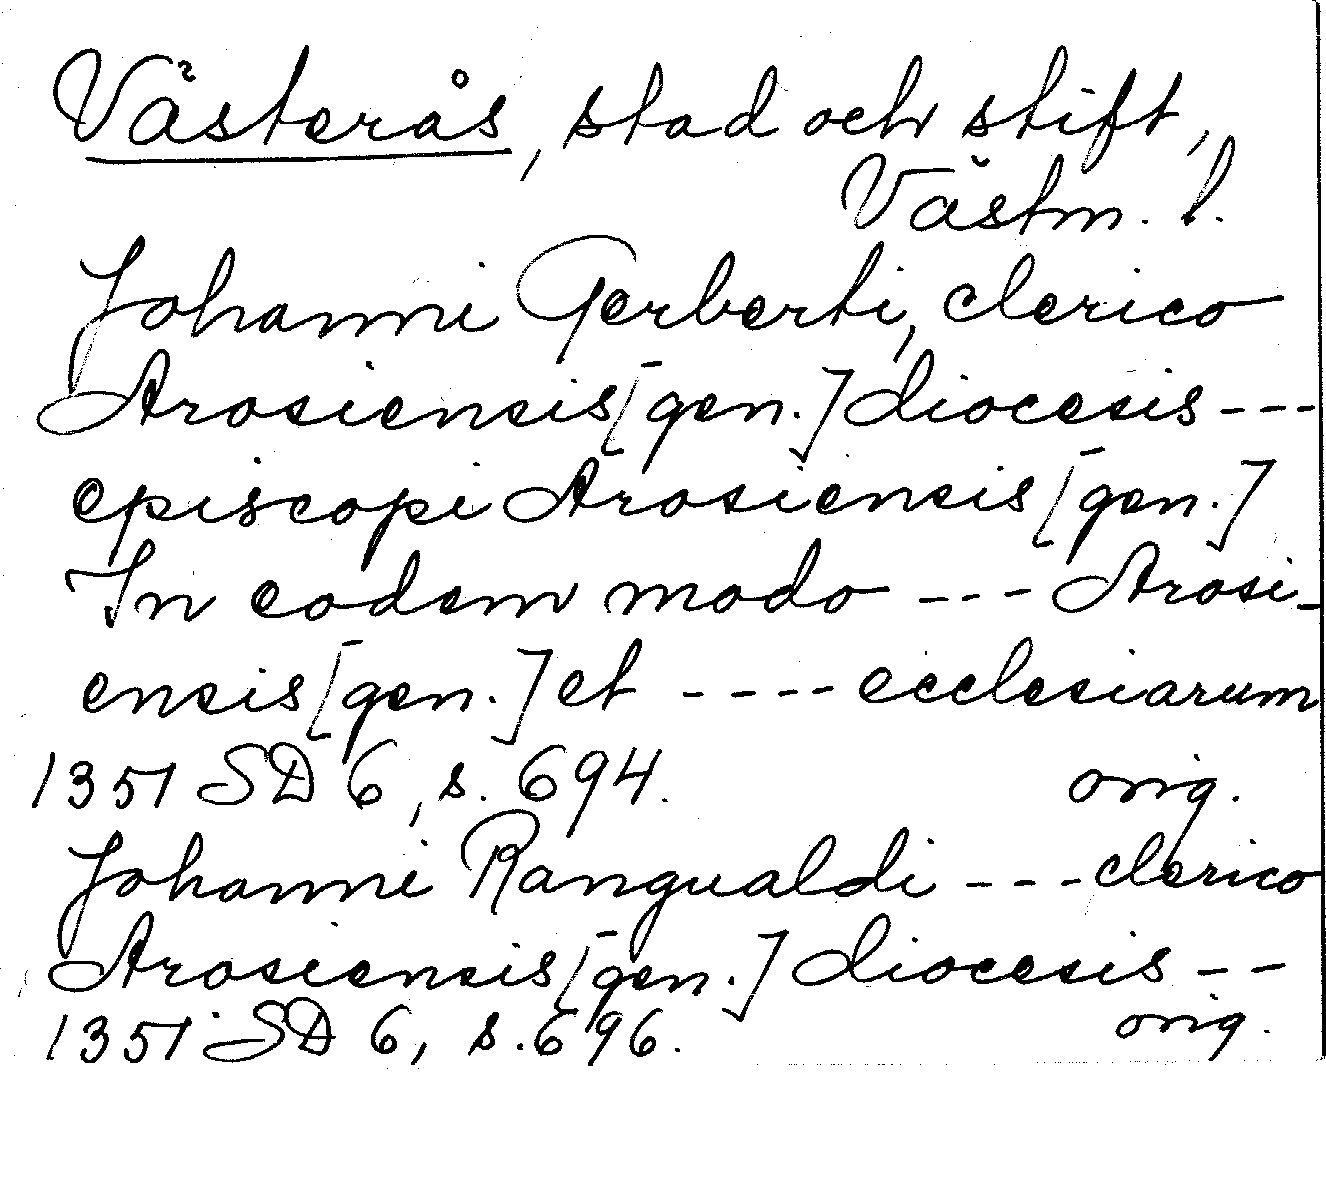 Västerås, stad och stift,
Västm. l.
Johanni Gerberti, clerico
Arosiensis [gen.] diocesis ---
episcopi Arosiensis [gen.]
In eodem modo --- Arosi-
ensis [gen.] et ---- ecclesiarum
1351 SD 6, s. 694. orig.
Johanni Rangualdi --- clerico
Arosiensis [gen.] diocesis --
1351 SD 6, s. 696. orig.